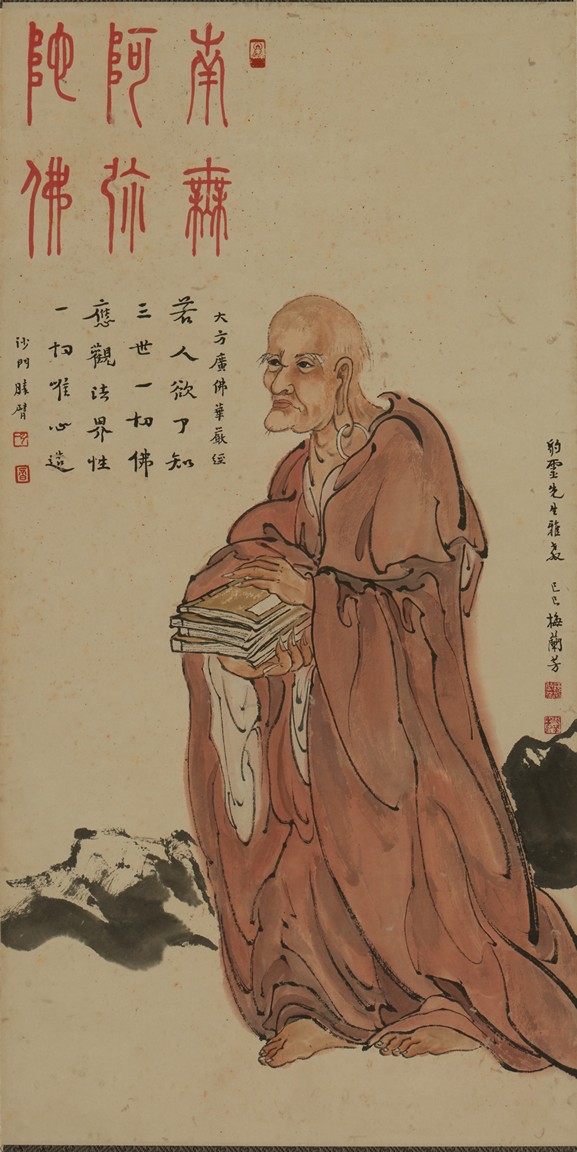 南無
阿弥
陀佛
大方廣佛華嚴經
若人欲了知
三世一切佛
應觀法界性
一切唯心造
沙門勝臂
豹靈先生雅教 己巳梅蘭芳